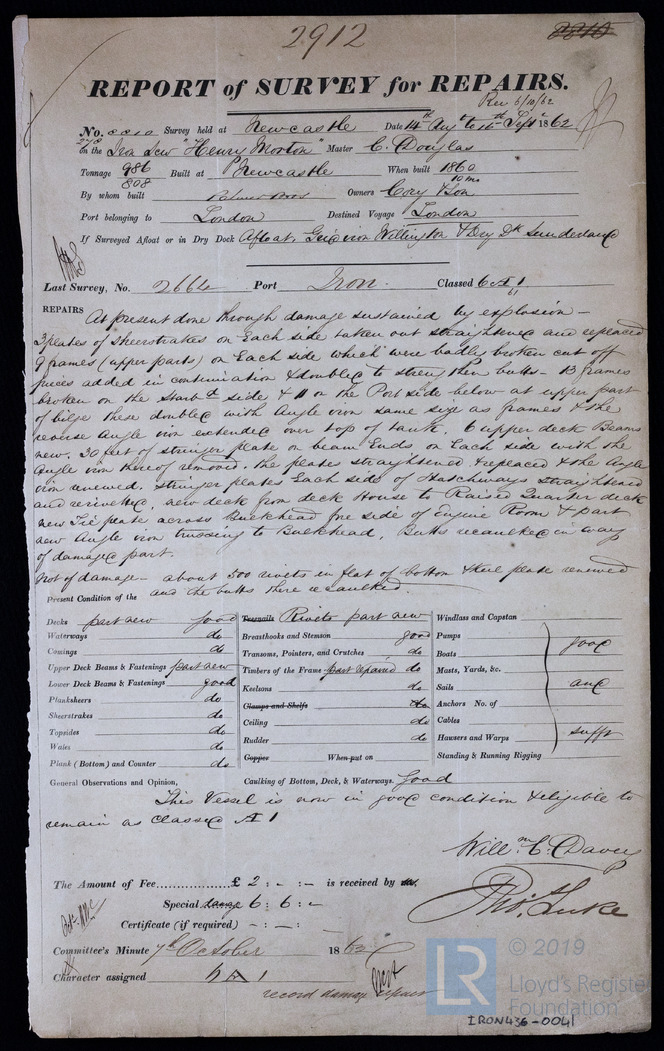 2912
REPORT of SURVEY for REPAIRS.
Rec 6/10/62
No. 2210 Survey held at Newcastle Date 14th Augt to 16th Septr 1862
on the Iron Screw "Henry Morton" Master C. Douglas
Tonnage 986 Built at Newcastle When built 1860
808 10 mo
By whom built Palmer Bros Owners Cory & Son
Port belonging to London Destined Voyage London
If Surveyed Afloat or in Dry Dock Afloat, Gridiron Willington & Dry Dk Sunderland
Last Survey, No. 2662 Port Iron. Classed 6 A 1
61
REPAIRS At present done through damage sustained by explosion –
3 plates of sheerstrakes on Each side taken out straightened and replaced
9 frames (upper parts) on Each side which were badly broken cut off
pieces added in continuation & doubled to strengthen butts – 13 frames
broken on the Starbd side & 11 on the Port side below at upper part
of bilge these doubled with Angle iron same size as frames & the
reverse Angle iron extended over top of tank. 6 upper deck Beams
new. 30 feet of stringer plate on beam Ends on Each side with the
Angle iron thereof removed. the plates straightened & replaced & the Angle
iron renewed. Stringer plates Each side of Hatchways straightened
and rerivetted, new deck from deck House to Raised Quarter deck
new Tie plate across Bulkhead fore side of Engine Room & part
new Angle iron trussing to Bulkhead, Butts recaulked in way
of damaged part.
Not of damage – about 500 rivets in flat of bottom & keel plate renewed
Present Condition of the and the butts there recaulked.
Decks part new good
Waterways do
Comings do
Upper Deck Beams & Fastenings part new
Lower Deck Beams & Fastenings good
Planksheers do
Sheerstrakes do
Topsides do
Wales do
Plank (Bottom) and Counter do
Treenails Rivets part new
Breasthooks and Stemson good
Transoms, Pointers, and Crutches do
Timbers of the Frame part repaired do
Keelsons do
Clamps and Shelfs do
Ceiling do
Rudder do
Copper When put on
Caulking of Bottom, Deck, & Waterways. Good
Windlass and Capstan
Pumps
Boats good
Masts, Yards, &c.
Sails and
Anchors No. of
Cables
Hawsers and Warps sufft
Standing & Running Rigging
General Observations and Opinion,
This Vessel is now in good condition & eligible to
remain as classed A 1
Willm C. Davey
Thos. Luke
The Amount of Fee............... £ 2 : – : – is received by
Special damage 6 : 6 : –
Certificate (if required) – : – : –
Committee's Minute 7th October 1862
Character assigned A 1
record damage repairs
© 2019
LR
Lloyd's Register
Foundation
IRON436-0041